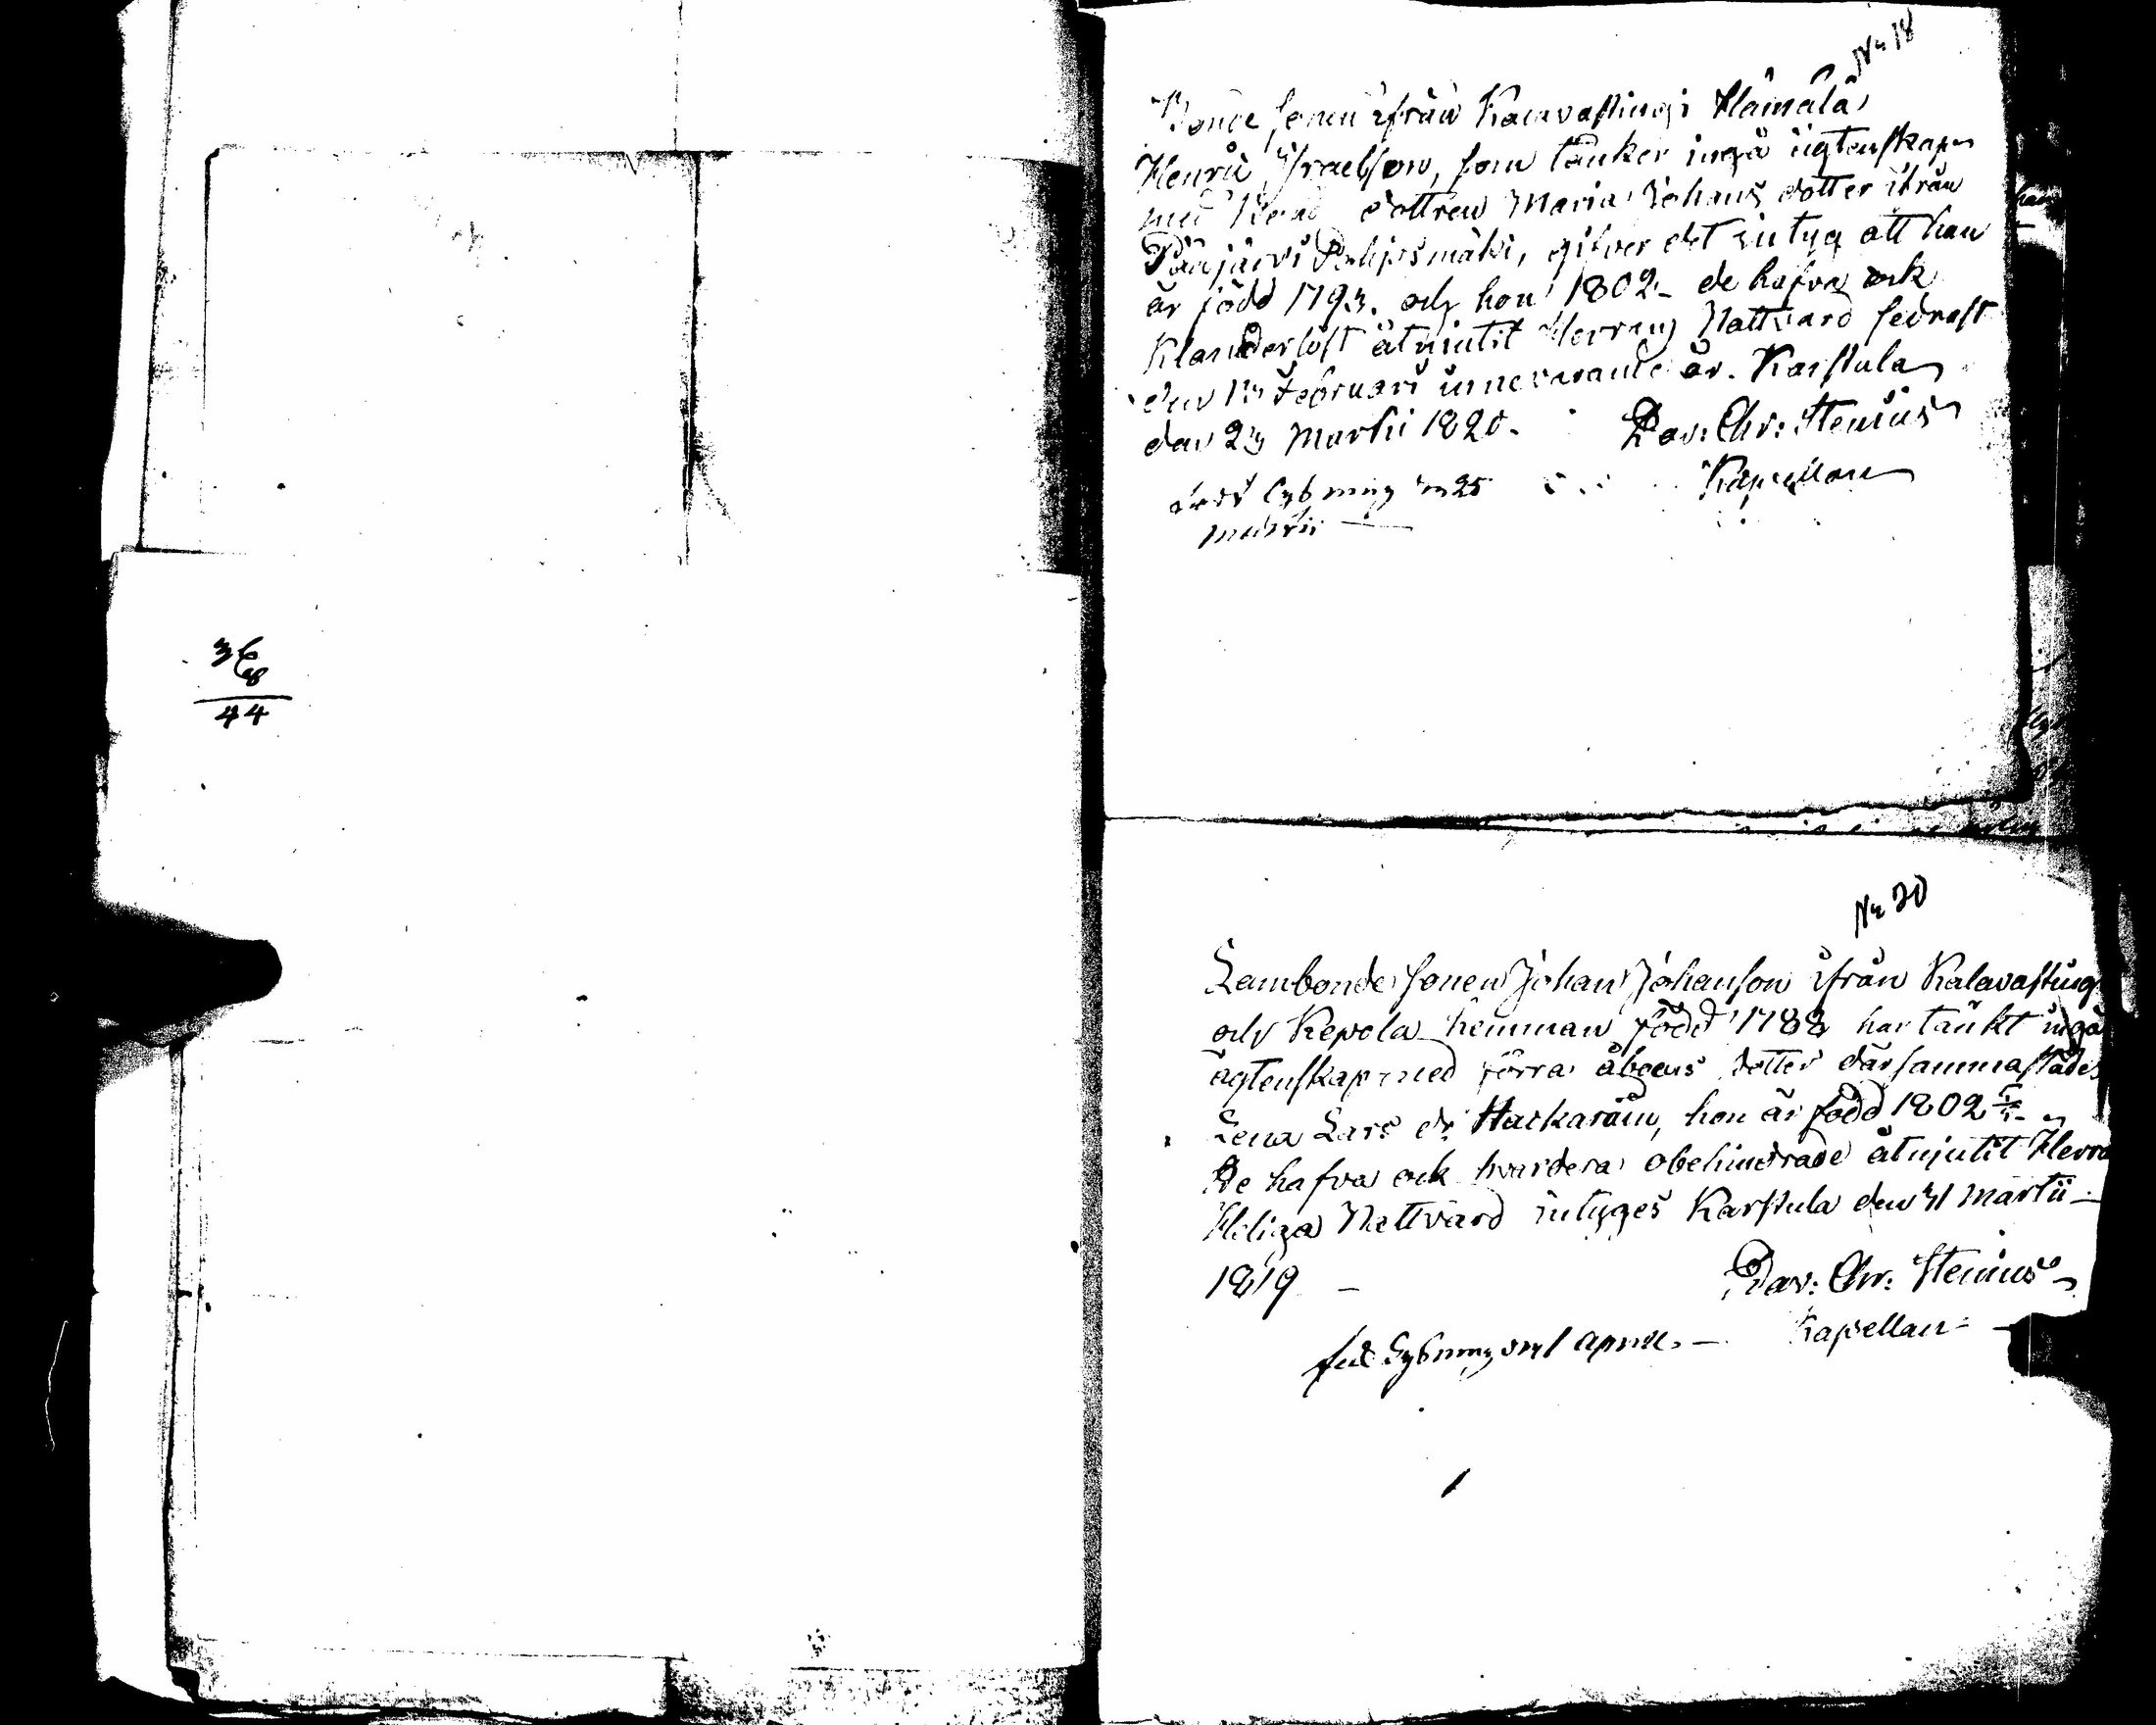 36
8
44
No 18
Bonde sonen ifrån Kalavastingi Hämälä
Henric Israelsson, som tänker ingå ägtenskap
med Bond dottren Maria Johans dotter ifrån
Pääjärvi Pohjosmäki, gifver det intyg att han
är född 1793. och hon 1802 - de hafva ock
Klanderlöst åtnjutit Herrans Nattvard sednast
den 13 Februari innevarande år. Karstula
den 23 Martii 1820. Dav: Chr: Stenius
Kapellan
Lysning 25
Martii
No 20
Lambonde sonen Johan Johanson ifrån Kalavasting
och Repola hemman född 1788 har tänkt ingå
ägtenskap med förra åboens dotter därsammastädes
Lena Lars dr Harkaräin, hon är född 1802
De hafva ock hvardera obehindrade åtnjutit Herra
Heliga Nattvard intyges Karstula den 31 Martii -
1819 - Dav: Chr: Stenius
Kapellan
Lysning April -